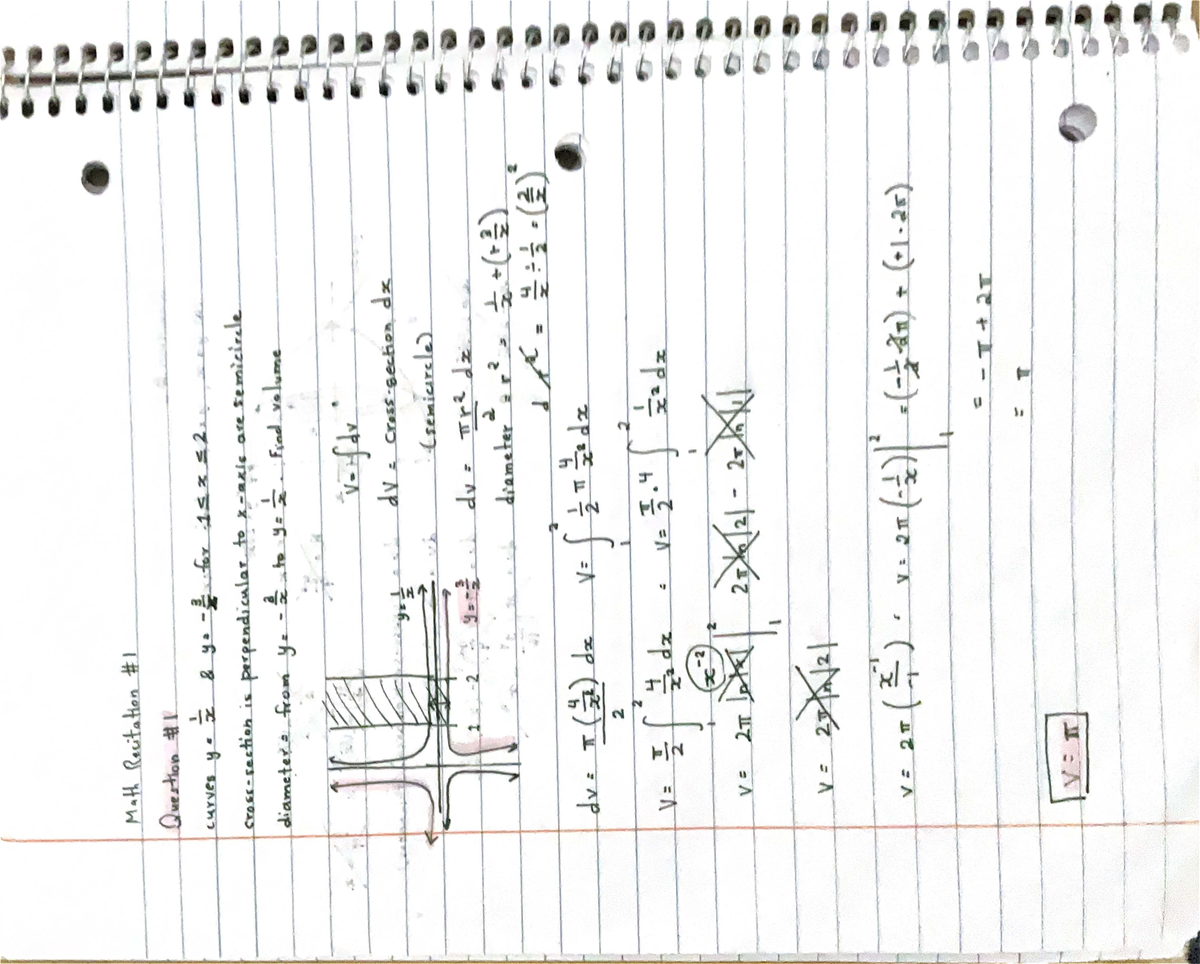 Math Recitation #1
Question #1
curves y = 1/x & y = -3/x for 1 ≤ x ≤ 2.
cross-section is perpendicular to x-axis are semicircle
diameter = from y = -3/x to y = 1/x. Find volume
y = 1/x
y = -3/x
1 2
V = ∫ dv
dv = cross-section dx
(semicircle)
dv = πr²/2 dx
diameter = r² = 1/x + (+3/x)
d = 4/x ÷ 1/2 = (2/x)²
dv = π(4/x²)/2 dx V = ∫₁² 1/2 π 4/x² dx
V = π/2 ∫₁² 4/x² dx = V = π/2 · 4 ∫₁² 1/x² dx
x⁻²
V = 2π ln|x| |₁² 2π ln|2| - 2π ln|1|
V = 2π ln|2|
V = 2π (x⁻¹/-1) = V = 2π (-1/x) |₁² = (-1/2 · 2π) + (+1 · 2π)
= -π + 2π
= π
V = π